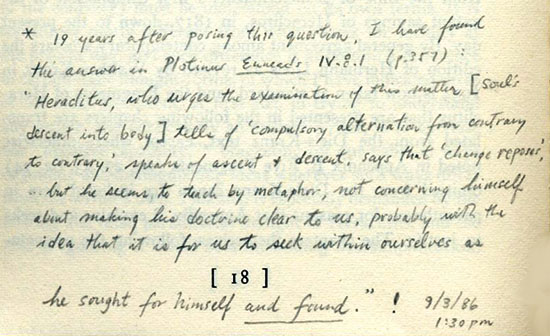 * 19 years after posing this question, I have found
the answer in Plotinus Enneads IV.8.1 (p.357):
"Heraclitus, who urges the examination of this matter [soul's
descent into body] tells of 'compulsory alternation from contrary
to contrary,' speaks of ascent & descent, says that 'change reposes',
.. but he seems to teach by metaphor, not concerning himself
about making his doctrine clear to us, probably with the
idea that it is for us to seek within ourselves as
[ 18 ]
he sought for himself and found." ! 9/3/86
1:30 pm